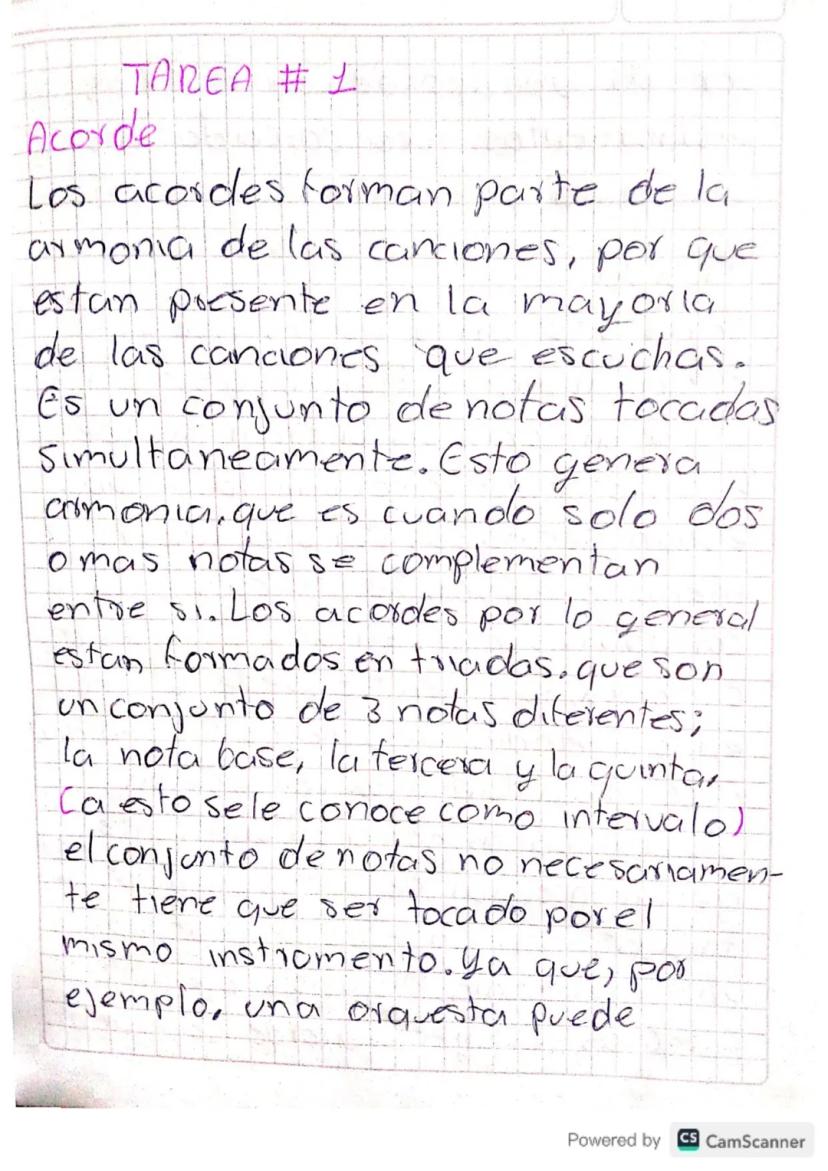 TAREA # 1
Acorde
Los acordes forman parte de la
armonia de las canciones, por que
estan presente en la mayoria
de las canciones que escuchas.
Es un conjunto de notas tocadas
simultaneamente. Esto genera
armonia, que es cuando solo dos
o mas notas se complementan
entre si. Los acordes por lo general
estan formados en triadas, que son
un conjunto de 3 notas diferentes;
la nota base, la tercera y la quinta,
(a esto se le conoce como intervalo)
el conjunto de notas no necesariamen-
te tiene que ser tocado por el
mismo instromento. Ya que, por
ejemplo, una orquesta puede
Powered by CS CamScanner